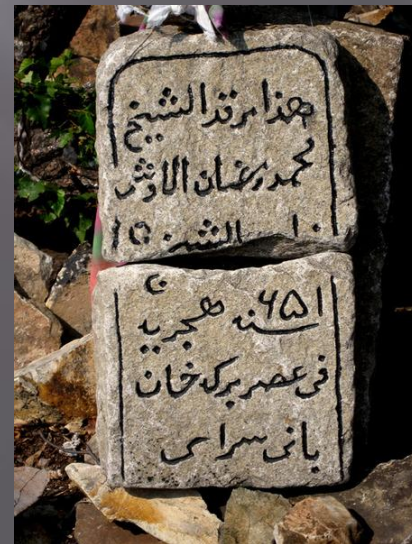 هذا مرقد الشيخ
محمد رمضان الاوشى
الشيخ
سنه ۶۵۱ هجريه
فى عصر بركه خان
بانى سراى